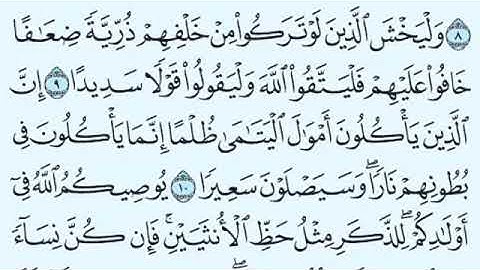 ٨ وَلْيَخْشَ الَّذِينَ لَوْ تَرَكُوا مِنْ خَلْفِهِمْ ذُرِّيَّةً ضِعَافًا
خَافُوا عَلَيْهِمْ فَلْيَتَّقُوا اللَّهَ وَلْيَقُولُوا قَوْلًا سَدِيدًا ٩ إِنَّ
الَّذِينَ يَأْكُلُونَ أَمْوَٰلَ الْيَتَامَىٰ ظُلْمًا إِنَّمَا يَأْكُلُونَ فِي
بُطُونِهِمْ نَارًا ۖ وَسَيَصْلَوْنَ سَعِيرًا ١٠ يُوصِيكُمُ اللَّهُ فِي
أَوْلَٰدِكُمْ ۖ لِلذَّكَرِ مِثْلُ حَظِّ الْأُنثَيَيْنِ ۚ فَإِن كُنَّ نِسَآءً